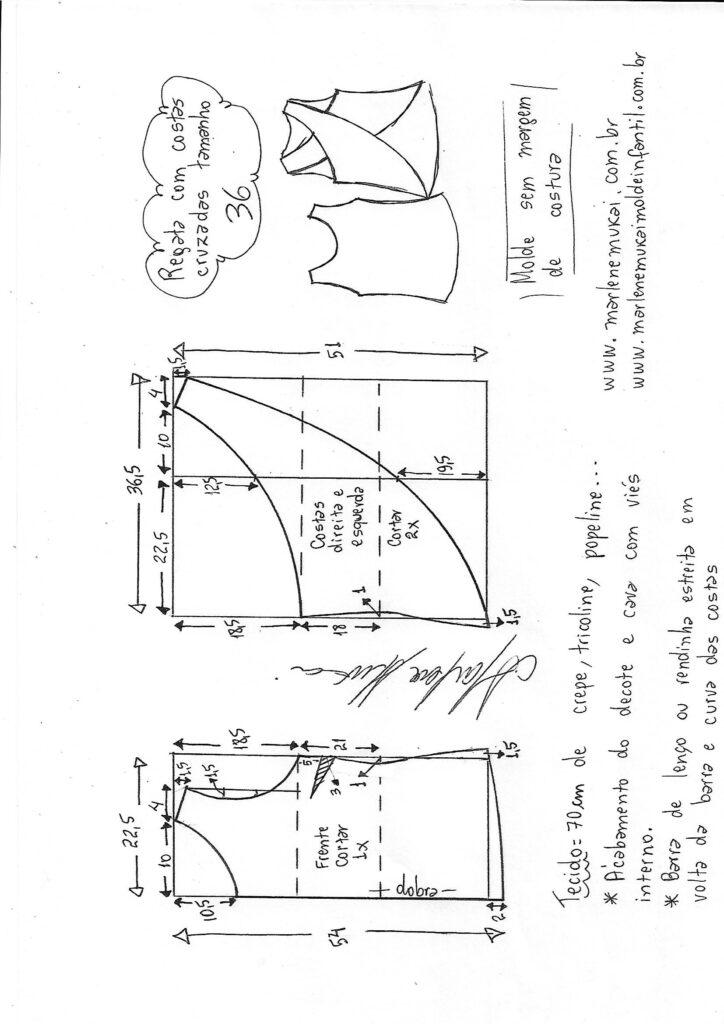 Regata com costas
cruzadas tamanho
36
Molde sem margem
de costura
www.marlenemukai.com.br
www.marlenemukaimoldeinfantil.com.br
36,5
22,5
10
4
1,5
51
12,5
19,5
18,5
18
1
1,5
Costas
direita e
esquerda
Cortar
2x
22,5
10
4
1,5
1,5
18,5
21
5
3
1
1,5
10,5
54
2
Frente
Cortar
1x
dobra
Tecido = 70cm de crepe, tricoline, popeline...
* Acabamento do decote e cava com viés
interno.
* Barra de lenço ou rendinha estreita em
volta da barra e curva das costas